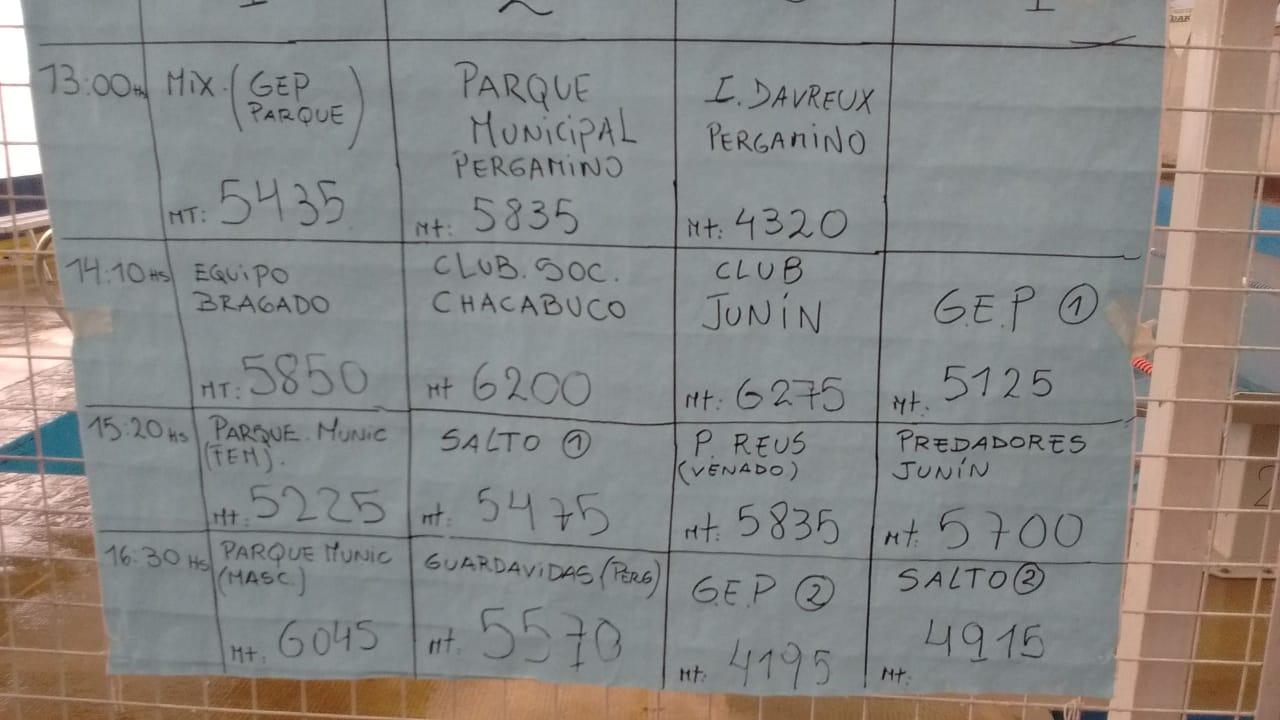 1 2
13:00 Hs MIX. (GEP PARQUE) MT: 5435
PARQUE MUNICIPAL PERGAMINO Mt: 5835
I. DAVREUX PERGAMINO Mt: 4320
14:10 HS EQUIPO BRAGADO MT: 5850
CLUB. SOC. CHACABUCO Mt 6200
CLUB JUNÍN Mt: 6275
G.E.P 1 Mt. 5125
15:20 Hs PARQUE. MUNIC (FEM). Mt. 5225
SALTO 1 Mt. 5475
P. REUS (VENADO) Mt. 5835
PREDADORES JUNÍN Mt. 5700
16:30 HS PARQUE MUNIC (MASC) Mt. 6045
GUARDAVIDAS (PERG) Mt. 5570
G.E.P 2 Mt. 4195
SALTO 2 Mt. 4915